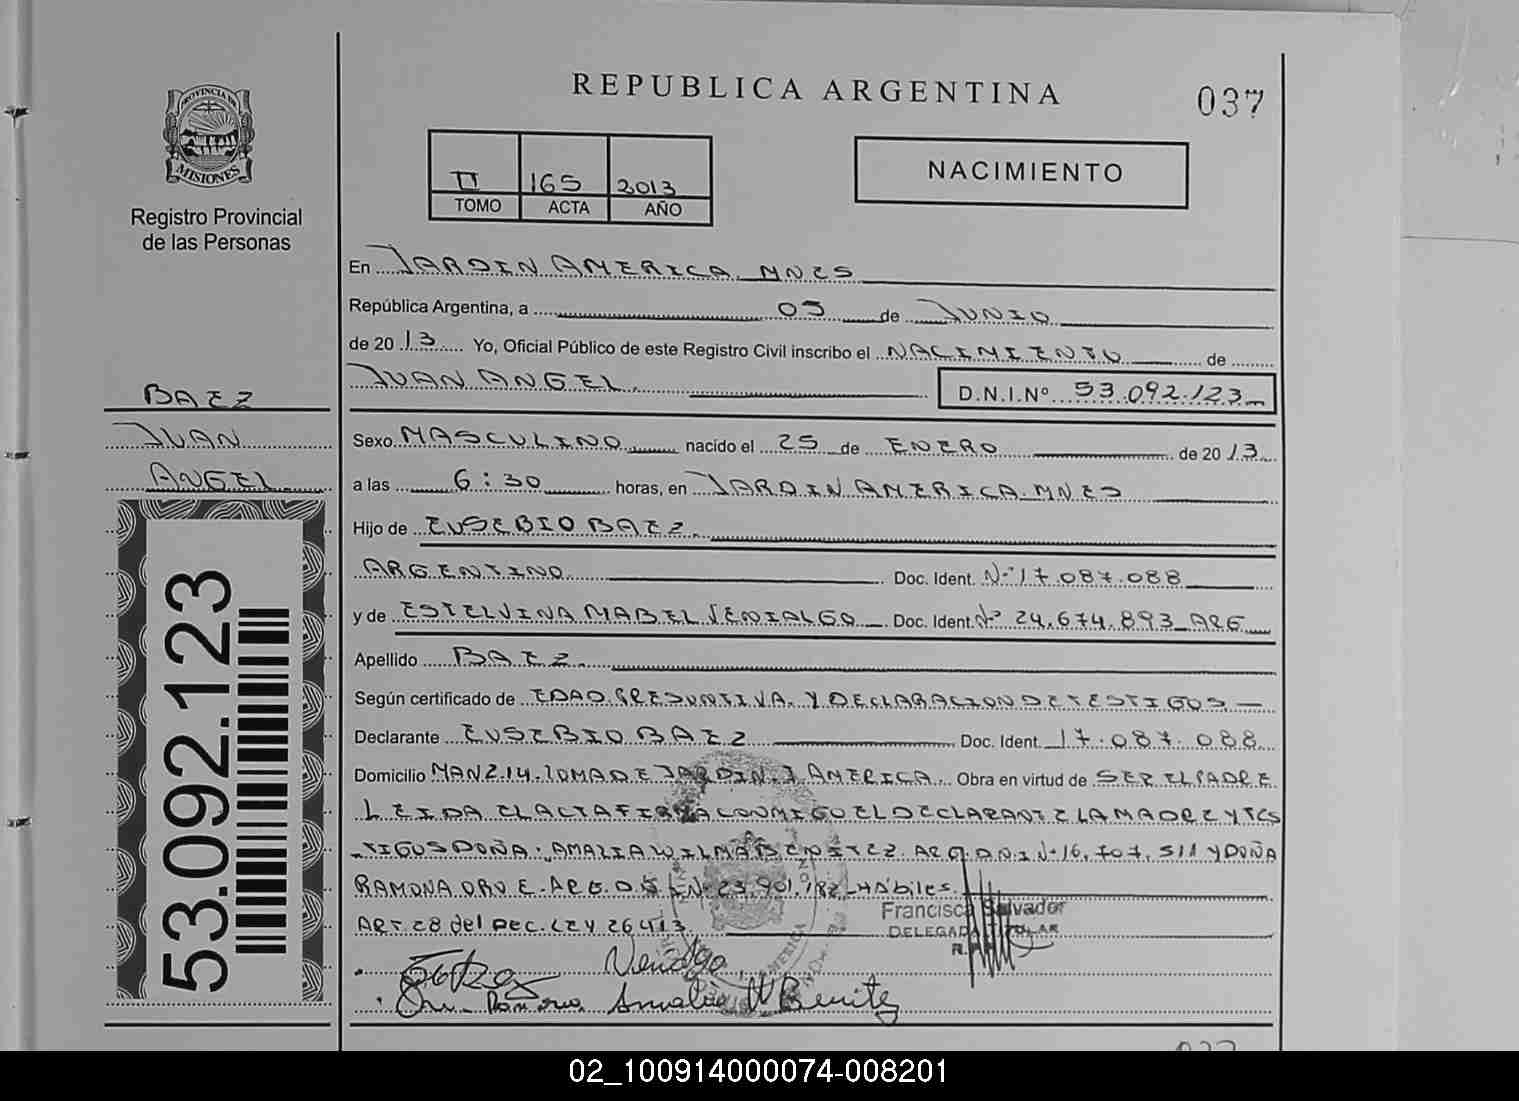 REPUBLICA ARGENTINA
037
PROVINCIA DE
MISIONES
Registro Provincial
de las Personas
II 165 2013
TOMO ACTA AÑO
NACIMIENTO
En JARDIN AMERICA. MNES
República Argentina, a 05 de JUNIO
de 2013 Yo, Oficial Público de este Registro Civil inscribo el NACIMIENTO de
JUAN ANGEL. D.N.I.Nº 53.092.123
BAEZ
JUAN
ANGEL
53.092.123
Sexo MASCULINO nacido el 25 de ENERO de 2013
a las 6:30 horas, en JARDIN AMERICA. MNES
Hijo de EUSEBIO BAEZ.
ARGENTINO Doc. Ident. Nº 17.087.088
y de ESTELVINA MABEL VENIALGO Doc. Ident. Nº 24.674.893 ARG
Apellido BAEZ.
Según certificado de EDAD PRESUNTIVA. Y DECLARACION DE TESTIGOS
Declarante EUSEBIO BAEZ Doc. Ident. 17.087.088
Domicilio MANZ.14. LOMA DE JARDIN. J AMERICA Obra en virtud de SER EL PADRE
LEIDA EL ACTA FIRMA CONMIGO EL DECLARANTE LA MADRE Y TES
TIGOS DOÑA. AMALIA WILMA BENITEZ ARG D.N.I Nº 16.707.511 Y DOÑA
RAMONA ORO E. ARG. D.N.I Nº 23.901.182 HABILES.
ART 28 del DEC. LEY 26413
Francisca Salvador
DELEGADA TITULAR
Venialgo
Oro Ramona Amalia W Benitez
02_100914000074-008201